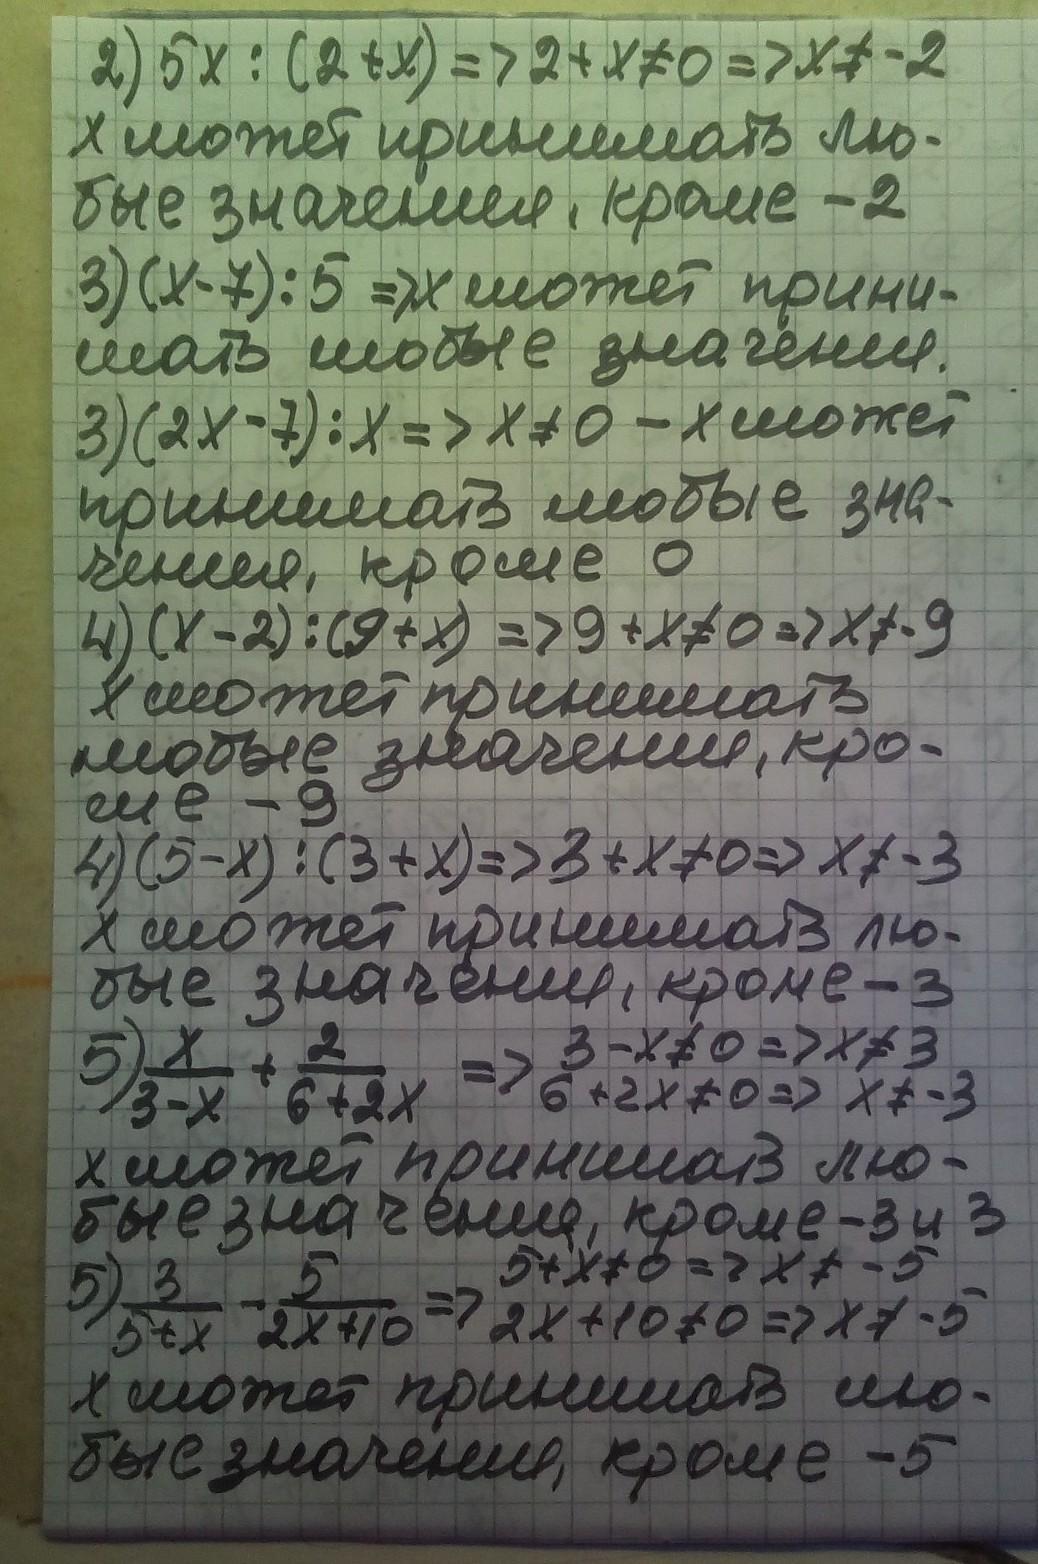 2) 5x : (2+x) => 2+x≠0 => x≠-2
x может принимать лю-
бые значения, кроме -2
3) (x-7):5 => x может прини-
мать любые значения.
3) (2x-7):x => x≠0 - x может
принимать любые зна-
чения, кроме 0
4) (x-2):(9+x) => 9+x≠0 => x≠-9
x может принимать
любые значения, кро-
ме -9
4) (5-x):(3+x) => 3+x≠0 => x≠-3
x может принимать лю-
бые значения, кроме -3
5) x/(3-x) + 2/(6+2x) => 3-x≠0 => x≠3
6+2x≠0 => x≠-3
x может принимать лю-
бые значения, кроме -3 и 3
5) 3/(5+x) - 5/(2x+10) => 5+x≠0 => x≠-5
2x+10≠0 => x≠-5
x может принимать лю-
бые значения, кроме -5